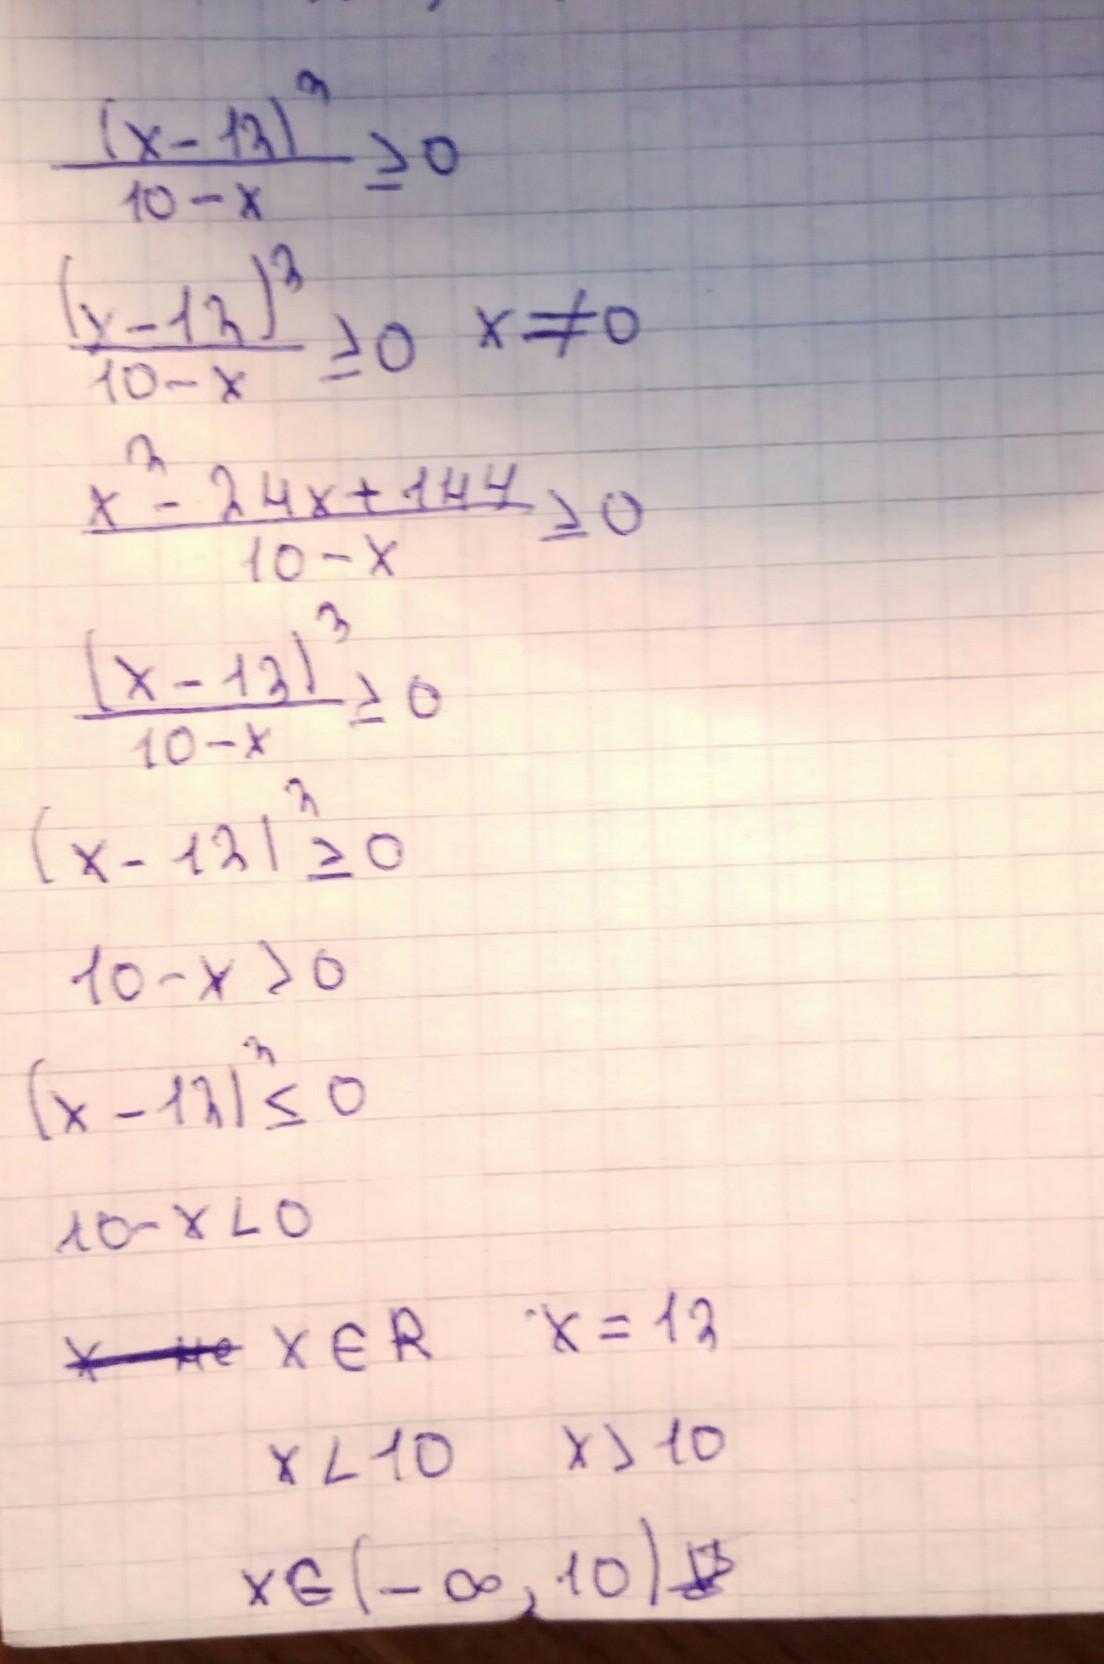 (x-12)² / 10-x ≥ 0
(x-12)² / 10-x ≥ 0 x ≠ 0
x² - 24x + 144 / 10-x ≥ 0
(x-12)² / 10-x ≥ 0
(x-12)² ≥ 0
10-x > 0
(x-12)² ≤ 0
10-x < 0
x ∈ R x = 12
x < 10 x > 10
x ∈ (-∞, 10)